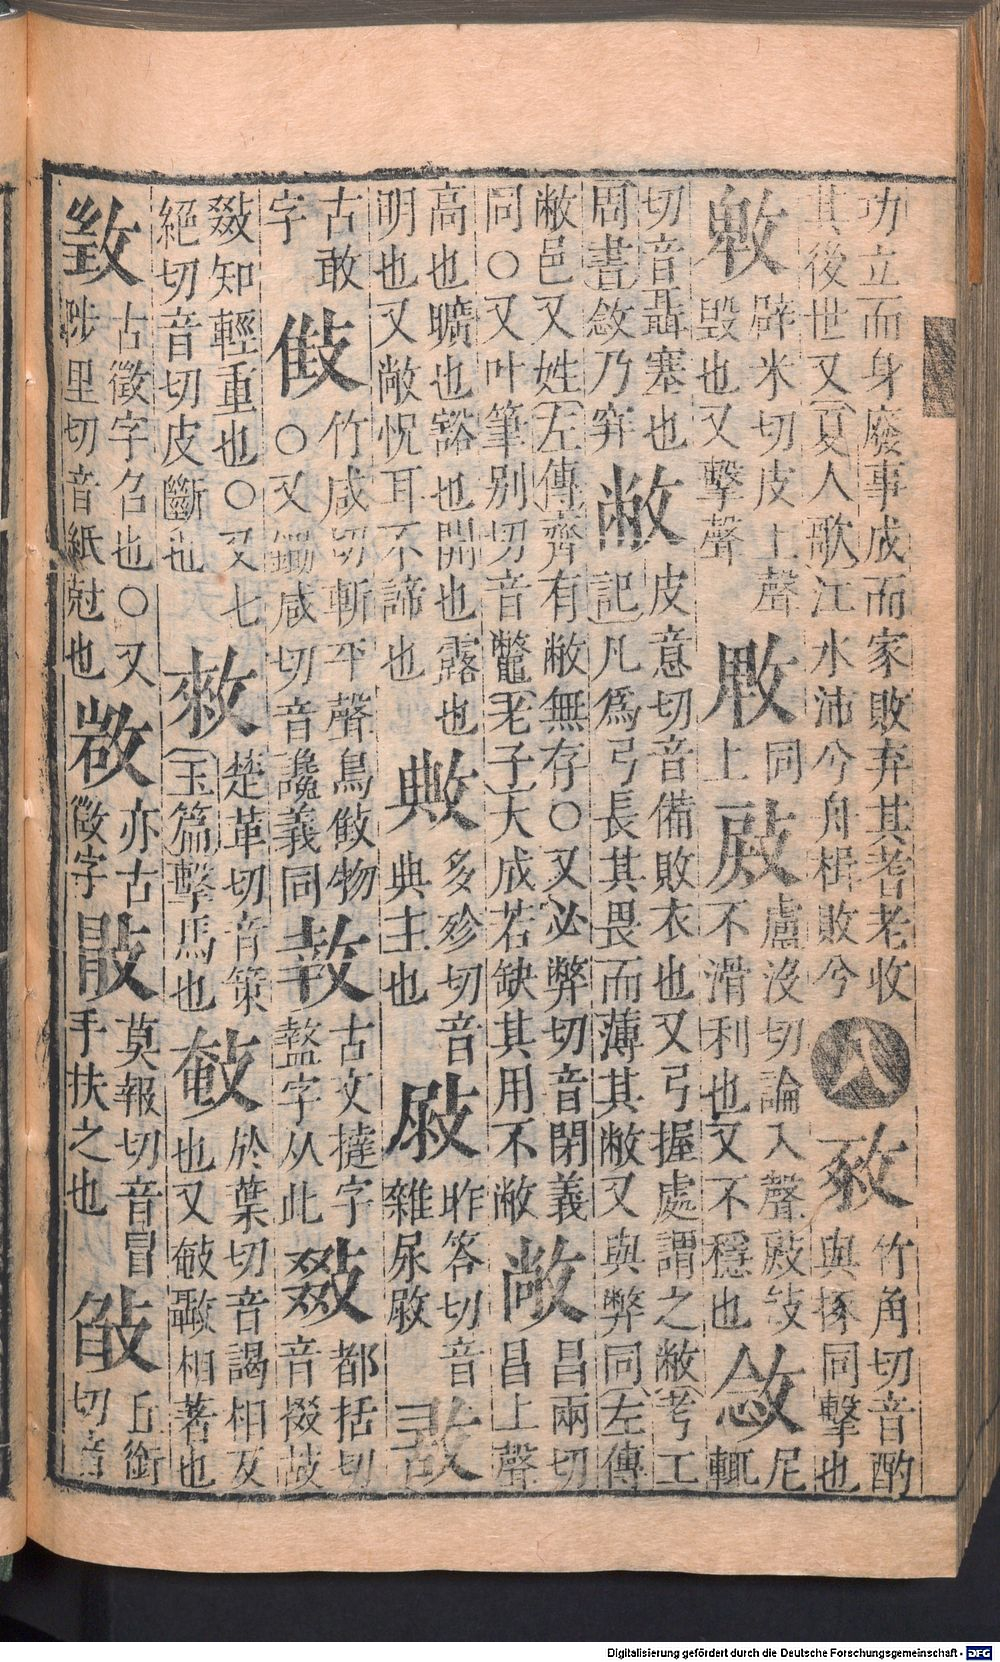 功立而身廢事成而家敗弃其耆老收
其後世又夏人歌江水沛兮舟楫敗兮
八
㪬
竹角切音酌
與㧻同擊也
𢾱
辟米切皮上聲
毀也又擊聲
同上
盧沒切論入聲㪐𢻃
不滑利也又不穩也
敜
尼輒
切音聶塞也
周書敜乃穽
敝
皮意切音備敗衣也又弓握處謂之敝考工
記凡為弓長其畏而薄其敝又與弊同左傳
敝邑又姓左傳齊有敝無存○又必弊切音閉義
同○又叶筆別切音鼈老子大成若缺其用不敝
敞
昌兩切
昌上聲
高也曠也豁也開也露也
明也又敞怳耳不諦也
敟
多殄切音
典主也
昨答切音
雜𡲰㞚
敢
古敢
字
竹咸切斬平聲鳥㪠物
○又鋤咸切音讒義同
古文撻字
盩字从此
敠
都括切
音掇敁
敠知輕重也○又七
絕切音切皮斷也
敕
楚革切音策
玉篇擊馬也
敮
於葉切音謁相及
也又敮㪉相著也
𢾷
古徵字召也○又
陟里切音紙尅也
亦古
徵字
莫報切音冒
手扶之也
丘銜
切音
Digitalisierung gefördert durch die Deutsche Forschungsgemeinschaft - DFG